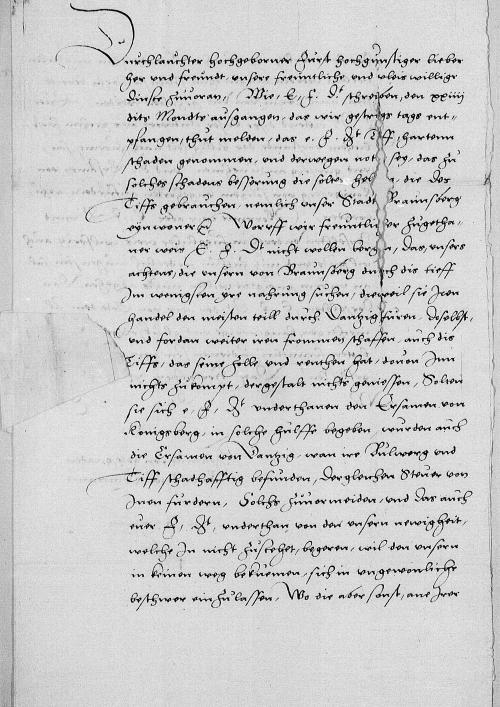 Durchlauchter hochgeborner Furst hochgunstiger lieber
her und freundt, unsere freuntliche und vleis willige
dinste zuuoran, Wie E. F. Dt schreiben, den xxiiij
dits Mondts ausgangen, das wir gestrigs tags ent-
pfangen, thut melden, das e. F. Dt Tiff, hartenn
schaden genommen, und derwegen not sey, das zu
solches schadens besserung die solten, die des
Tiffs gebrauchen, nemlich unser Stadt Braunsberg
eynwoner Woruff wir freuntlicher zugetha-
ner weis E. F. Dt nicht wollen bergen, das, unsers
achtens, die unsern von Braunsberg durch dis tieff
Im wenigsten yre nahrung suchen, dieweil sie Iren
handel den meisten teill durch Dantzig furen, doselbst,
und fordan weiter iren frommen schaffen, auch dis
Tiffs, das seine zolle und renthen hat, dovon Inn
nichts zukompt, dergestalt nichts geniessen, Solten
sie sich e. F. Dt underthanen den Ersamen von
Konigsberg, in solche hulffe begeben, wurden auch
die Ersamen von Dantzig, wan ire Bulwerg und
Tiff schadhafftig befunden, dergleichen Steuer von
Inen furdern, Solchs zuuormeiden, und das auch
euer F. Dt, underthan von den unsern newigheit,
welche In nicht zustehet, begeren, wil den unsern
in keinen weg bekuemen, sich in ungewonliche
beschwer einzulassen, Wo die aber sonst, ane Irer